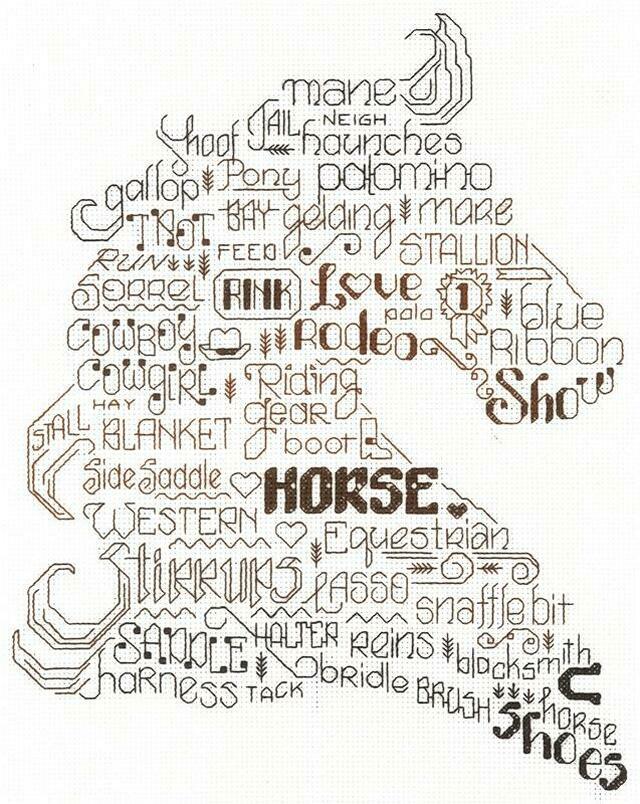 mane
TAIL NEIGH
hoof haunches
gallop Pony palomino
TROT BAY gelding MARE
RUN FEED STALLION
SORREL RINK Love 1 blue
COWBOY Rodeo polo Ribbon
COWgiRL Riding Show
HAY gear
STALL BLANKET boot
Side Saddle HORSE
WESTERN Equestrian
Stirrups LASSO snaffle bit
SADDLE HALTER REINS blacksmith
harness TACK bridle BRUSH horse
shoes